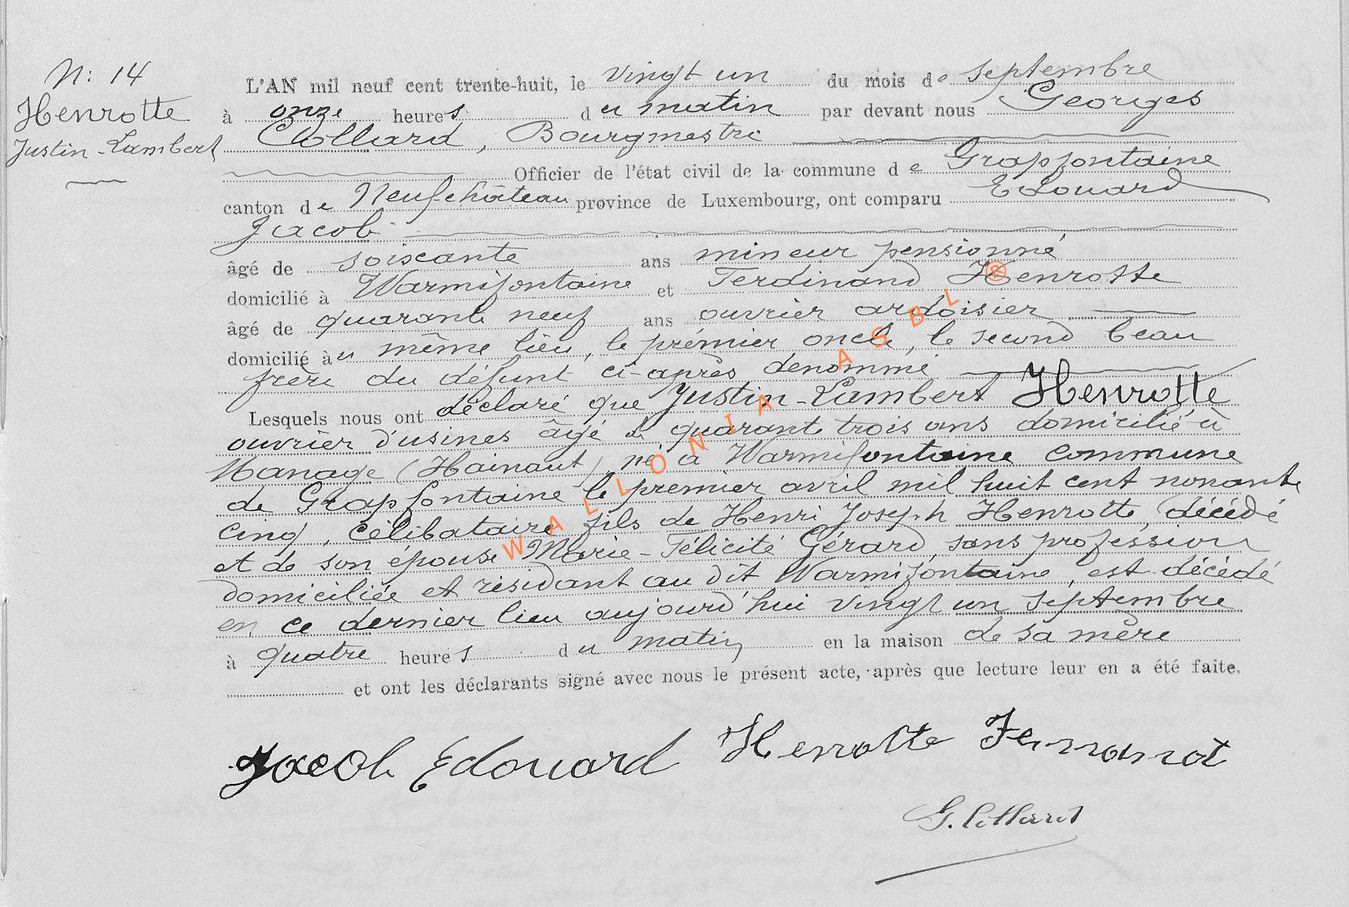 N: 14
Henrotte
Justin-Lambert
L'AN mil neuf cent trente-huit, le vingt un du mois de septembre
à onze heures du matin par devant nous Georges
Collard, Bourgmestre
Officier de l'état civil de la commune de Grapfontaine
canton de Neufchâteau province de Luxembourg, ont comparu Edouard
Jacob
âgé de soixante ans mineur pensionné
domicilié à Warmifontaine et Ferdinand Henrotte
âgé de quarante neuf ans ouvrier ardoisier
domicilié au même lieu, le prémier oncle, le second beau
frère du défunt ci-après dénommé
Lesquels nous ont déclaré que Justin-Lambert Henrotte
ouvrier d'usines âgé de quarante trois ans domicilié à
Manage (Hainaut) né à Warmifontaine commune
de Grapfontaine le premier avril mil huit cent nonante
cinq, célibataire fils de Henri Joseph Henrotte, décédé
et de son épouse Marie-Félicité Gérard, sans profession
domiciliée et résidant au dit Warmifontaine, est décédé
en ce dernier lieu aujourd'hui vingt un septembre
à quatre heures du matin en la maison de sa mère
et ont les déclarants signé avec nous le présent acte, après que lecture leur en a été faite.
Jacob Edouard Henrotte Fernanot
G. Collard
WALLONIA ASBL ®